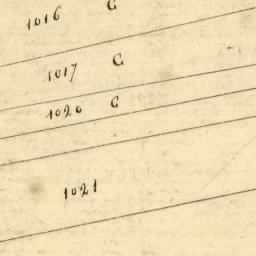 1016 G
1017 G
1020 G
1021